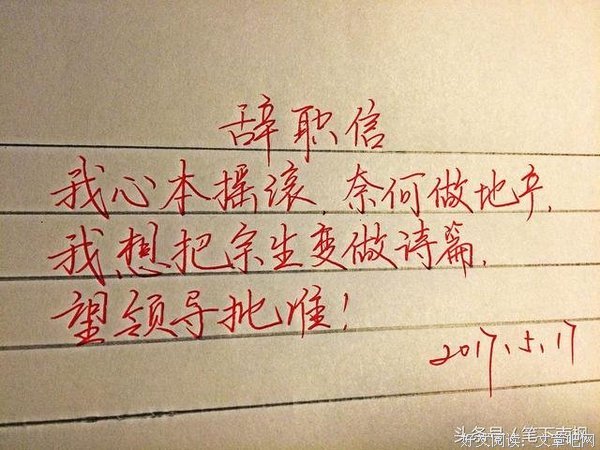 辞职信
我心本摇滚,奈何做地产,
我想把余生变做诗篇,
望领导批准!
2017.5.17
头条号/笔下南枫
好文阅读:文章吧网